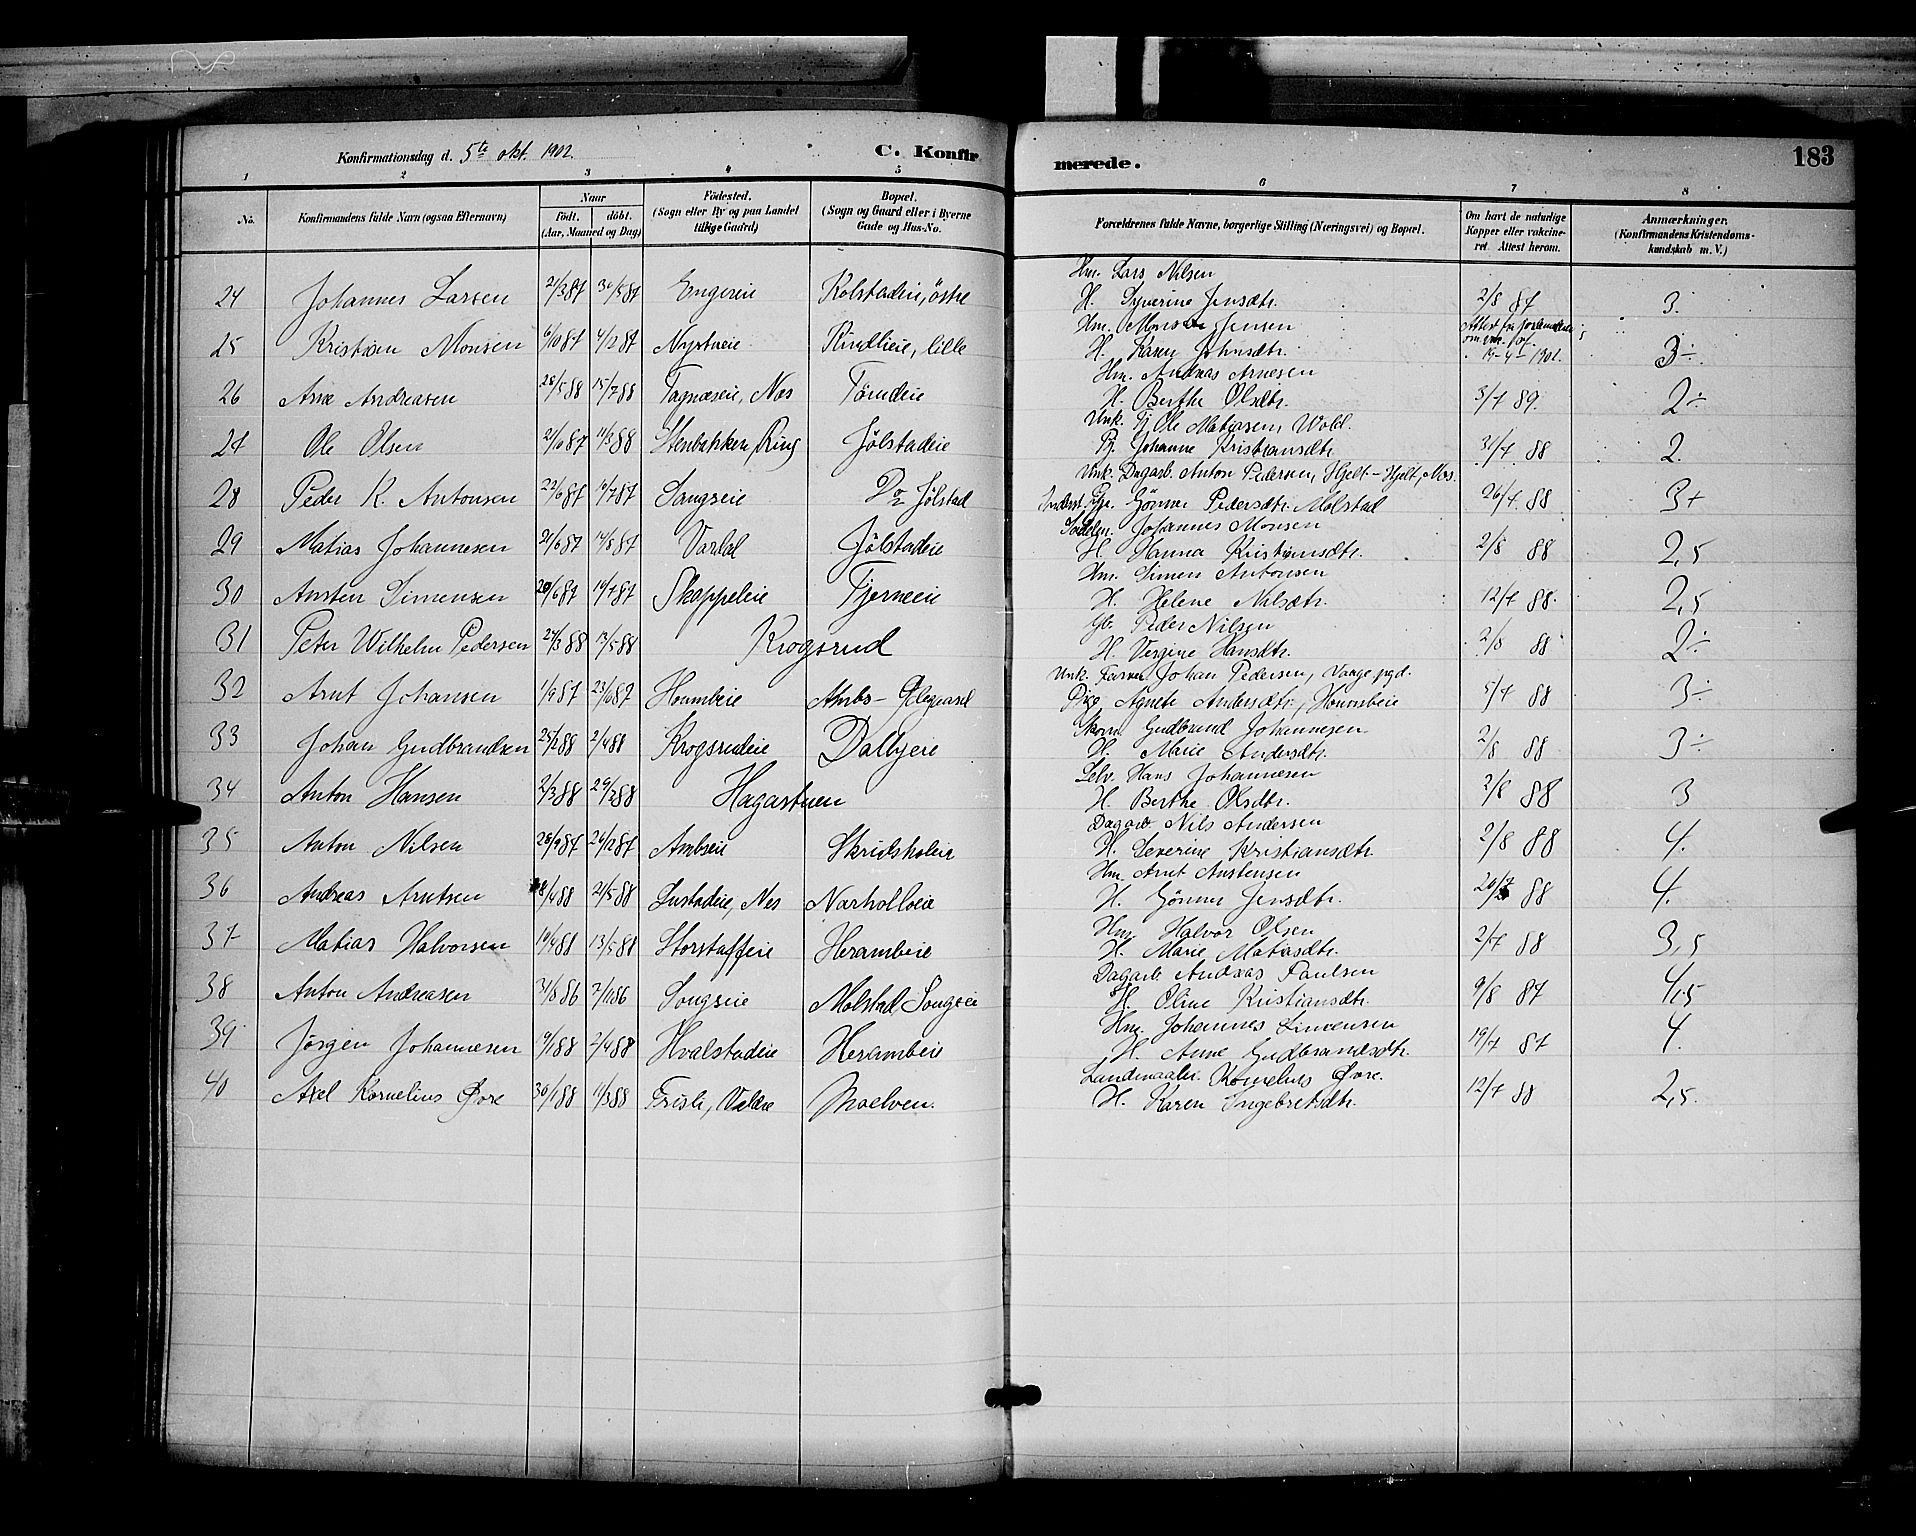 Konfirmationsdag d. 5te okt. 1902.
C. Konfirmerede.
183
1 2 3 4 5 6 7 8
No.
Konfirmandens fulde Navn (ogsaa Efternavn)
Naar
Født. døbt.
(Aar, Maaned og Dag)
Fødested.
(Sogn eller By og paa Landet
tillige Gaard)
Bopæl.
(Sogn og Gaard eller i Byerne
Gade og Hus-No.
Forældrenes fulde Navne, borgerlige Stilling (Næringsvei) og Bopæl.
Om havt de naturlige
Kopper eller vakcine-
ret. Attest herom.
Anmærkninger.
(Konfirmandens Kristendoms-
kundskab m. V.)
Hm. Lars Nilsen
24 Johannes Larsen 2/3 87 30/5 87 Engeseie Kolstadeie, östre H. Syverine Jensdtr. 2/8 87 3.
Hm. Mons Jensen
25 Kristian Monsen 6/10 87 4/12 87 Nystueie Rindlieie, lille H. Karen Johnsdtr. 19-4-1902 3÷
Hm. Andreas Arnesen
26 Arne Andreasen 28/5 88 15/7 88 Nes Tömdeie H. Berthe Olsdtr. 3/7 89. 2÷
Unk. Tj. Ole Matiasen Wold.
27 Ole Olsen 11/3 88 Stenbakken, Ring Jølstadeie Pj. Johanne Kristiansdtr. 31/7 88 2.
Unk. Dagarb. Anton Pedersen, Hjelt-Hjelt, Nes.
28 Peder K. Antonsen 22/6 87 Sangseie Do Jølstad Gönner Pedersdtr. Molstad 26/7 88 3+
Johannes Monsen
29 Matias Johannesen 21/6 87 14/8 87 Vardal Jølstadeie H. Hanna Kristiansdtr. 2/8 88 2,5
Hm. Simen Antonsen
30 Austen Simensen 20/6 87 Skappeleie Tjerneeie H. Helene Nilsdtr. 12/7 88. 2,5
Gbr. Peder Nilsen
31 Peter Wilhelm Pedersen 27/3 88 13/5 88 Krogsrud H. Vergine Hansdtr. 2/8 88 2÷
Unk. Johan Pedersen, Vange pgd.
32 Arnt Johansen 1/9 87 Houmbeie Pige Agnete Andersdtr., Houmbeie 5/7 88 3÷
Skom. Gudbrand Johannesen
33 Johan Gudbrandsen 25/2 88 2/4 88 Krogsrudeie Dalbyeie H. Marie Andersdtr. 2/8 88 3÷
Selv. Hans Johannesen
34 Anton Hansen 2/3 88 29/3 88 Hagastuen H. Berthe Olsdtr. 2/8 88 3
Dagarb. Nils Andersen
35 Anton Nilsen 28/9 87 26/12 87 Ambseie Skridsholeie H. Severine Kristiansdtr. 2/8 88 4.
Hm. Arnt Austensen
36 Andreas Arntsen 8/4 88 21/5 88 Lustadeie, Nes Narholloeie H. Gönner Jensdtr. 20/7 88 4.
Hm. Halvor Olsen
37 Matias Halvorsen 14/4 88 13/5 88 Storstaffeie Herambeie H. Marie Matiasdtr. 2/7 88 3,5
Dagarb. Andreas Paulsen
38 Anton Andreasen 31/8 86 7/11 86 Songseie Molstad Songseie H. Oline Kristiansdtr. 9/8 87 4,5
Hm. Johannes Simensen
39 Jørgen Johannesen 9/1 88 2/4 88 Hvalstadeie Herambeie H. Anne Gudbrandsdtr. 19/7 87 4.
Landmaaler Kornelius Øvre.
40 Axel Kornelius Øvre 30/1 88 11/3 88 Frisli, Veldre Moelven. H. Karen Ingebretsdtr. 12/7 88 2,5.